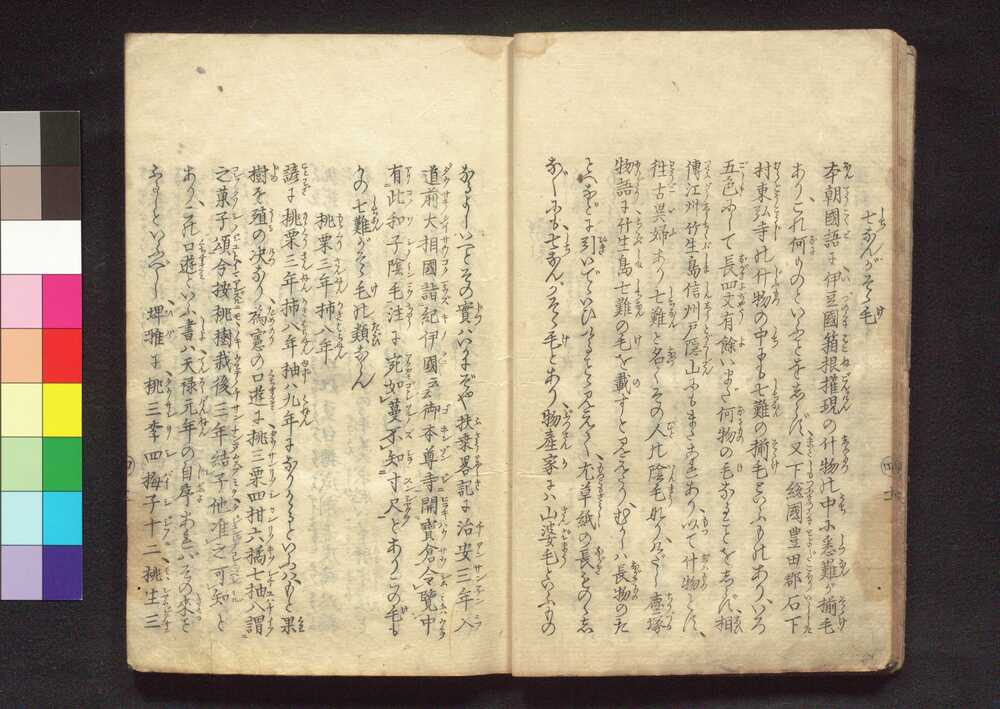 七なんがそゝ毛
本朝國語に伊豆國箱根權現の什物の中に悉難が揃毛
ありこれ何ものといふことをしらず又下総國豊田郡石下
村東弘寺の什物の中にも七難の揃毛といふものありいろ
五色にして長四丈有餘いまだ何物の毛なることをしらず相
傳江州竹生島信州戸隠山にもまたこれあり以て什物とす
往古異婦あり七難と名くその人の陰毛なり
物語に竹生島七難の毛を載すと見えたりむかしハ長物のた
とへなどに引いでゝいひ 草紙の長をのゝし
なんにも七なんがそゝ毛とあり物産家にハ山婆毛といふもの
なるよしいへどその實ハいかにぞや扶桑畧記に治安三年入
道前大相國詣紀伊國云御本尊寺開寶倉令覽中
有此和子陰毛注に宛如蔓不知寸尺とありこの毛も
かの七難がそゝ毛の類ならん
桃栗三年柿八年
諺に桃栗三年柿八年柚ハ九年になりかゝるといふハもと果
樹を殖の决なり為憲の口遊に桃三栗四柑六橘七柚八謂
之菓子頌今按桃樹栽後三年結子他准之可知と
ありこの口遊といふ書ハ天禄元年の自序あれバその来を
ふるしといふべし埤雅に桃三李四梅子十二桃生三